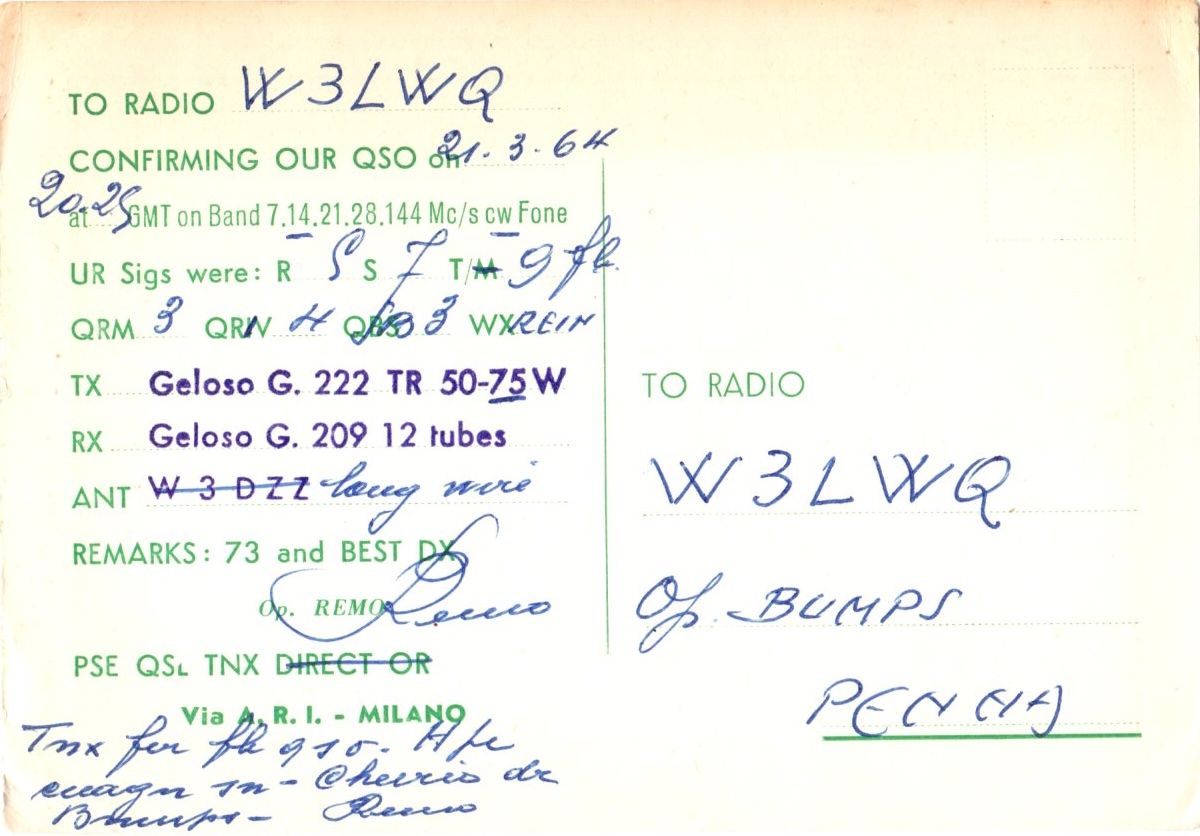 TO RADIO W3LWQ
CONFIRMING OUR QSO on 21.3.64
at 20.25 GMT on Band 7.14.21.28.144 Mc/s cw Fone
UR Sigs were: R 5 S 7 T/M 9 fb.
QRM 3 QRN 4 QSB 3 WX REIN
TX Geloso G. 222 TR 50-75 W
RX Geloso G. 209 12 tubes
ANT W 3 DZZ long wire
REMARKS: 73 and BEST DX
Op. REMO Remo
PSE QSL TNX DIRECT OR
Via A. R. I. - MILANO
Tnx fer fb qso. Hpe
cuagn sn - Cheerio dr
Bumps - Remo
TO RADIO
W3LWQ
Op. BUMPS
PENNA